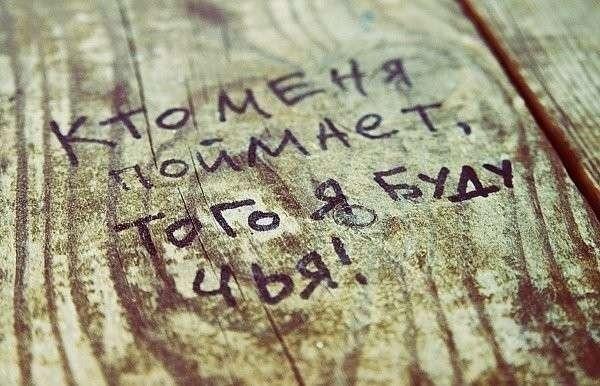 кто меня
поймает,
того я буду
чья!